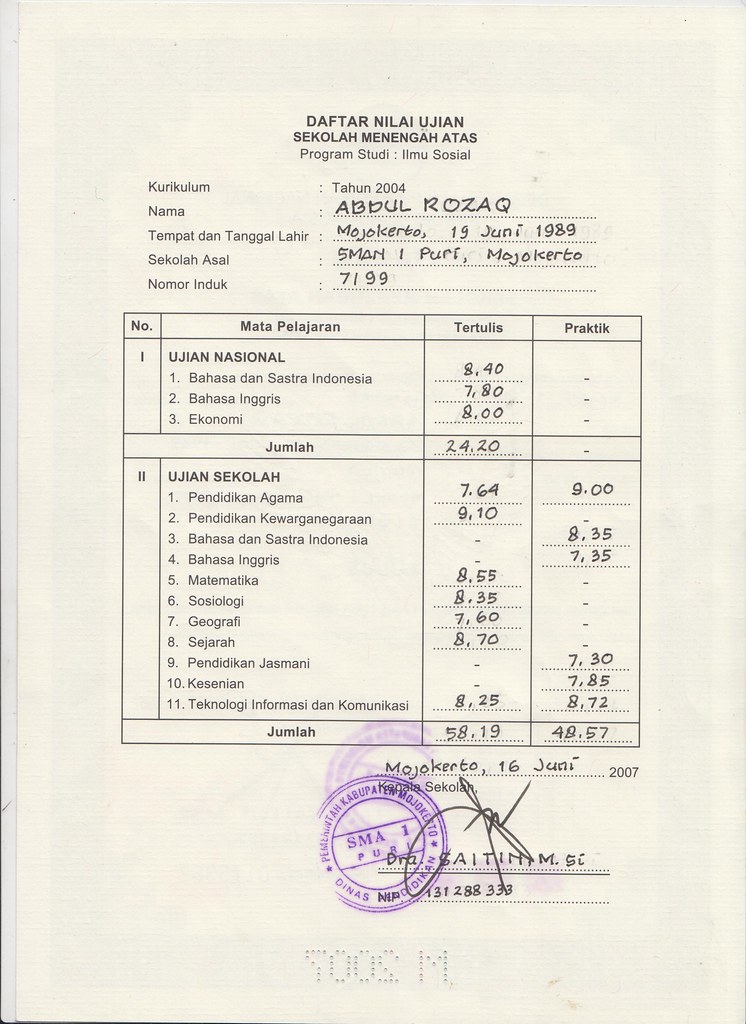 DAFTAR NILAI UJIAN
SEKOLAH MENENGAH ATAS
Program Studi : Ilmu Sosial
Kurikulum : Tahun 2004
Nama : ABDUL ROZAQ
Tempat dan Tanggal Lahir : Mojokerto, 19 Juni 1989
Sekolah Asal : SMAN 1 Puri, Mojokerto
Nomor Induk : 7199
No. Mata Pelajaran Tertulis Praktik
I UJIAN NASIONAL
1. Bahasa dan Sastra Indonesia 8,40 -
2. Bahasa Inggris 7,80 -
3. Ekonomi 8,00 -
Jumlah 24,20 -
II UJIAN SEKOLAH
1. Pendidikan Agama 7.64 9.00
2. Pendidikan Kewarganegaraan 9,10 -
3. Bahasa dan Sastra Indonesia - 8,35
4. Bahasa Inggris - 7,35
5. Matematika 8,55 -
6. Sosiologi 8.35 -
7. Geografi 7,60 -
8. Sejarah 8,70 -
9. Pendidikan Jasmani - 7,30
10. Kesenian - 7,85
11. Teknologi Informasi dan Komunikasi 8,25 8,72
Jumlah 58,19 48,57
Mojokerto, 16 Juni 2007
Kepala Sekolah,
PEMERINTAH KABUPATEN MOJOKERTO
SMA 1
PURI
DINAS PENDIDIKAN
Dra. SAITIN, M. Si
NIP. 131 288 333